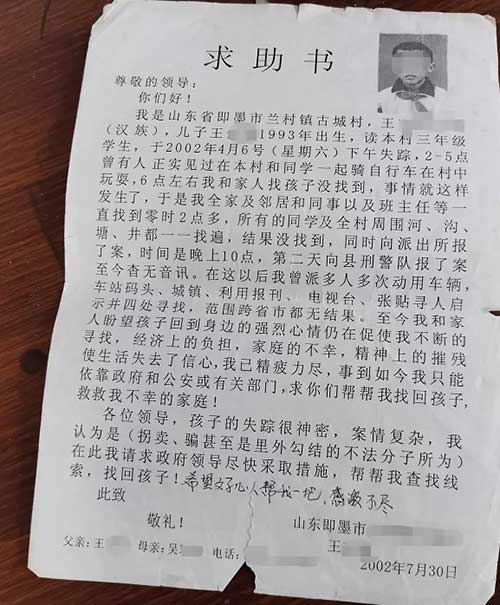 求助书
尊敬的领导：
你们好！
我是山东省即墨市兰村镇古城村，王
（汉族），儿子王 1993年出生，读本村三年级
学生，于2002年4月6号（星期六）下午失踪，2-5点
曾有人正实见过在本村和同学一起骑自行车在村中
玩耍，6点左右我和家人找孩子没找到，事情就这样
发生了，于是我全家及邻居和同事以及班主任等一
直找到零时2点多，所有的同学及全村周围河、沟、
塘、井都一一找遍，结果没找到，同时向派出所报
了案，时间是晚上10点，第二天向县刑警队报了案
至今杳无音讯。在这以后我曾派多人多次动用车辆，
车站码头、城镇、利用报刊、电视台、张贴寻人启
示并四处寻找，范围跨省市都无结果。至今我和家
人盼望孩子回到身边的强烈心情仍在促使我不断的
寻找，经济上的负担，家庭的不幸，精神上的摧残
使生活失去了信心，我已精疲力尽，事到如今我只能
依靠政府和公安或有关部门，求你们帮帮我找回孩子，
救救我不幸的家庭！
各位领导，孩子的失踪很神密，案情复杂，我
认为是（拐卖、骗甚至是里外勾结的不法分子所为）
在此我请求政府领导尽快采取措施，帮帮我查找线
索，找回孩子！希望好心人帮我一把，感激不尽
此致
敬礼！ 山东即墨市
王
父亲：王 母亲：吴 电话：
2002年7月30日